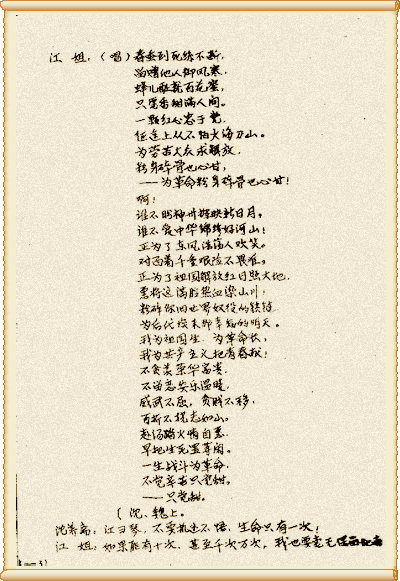 江 姐：（唱）春蚕到死丝不断，
留赠他人御风寒，
蜂儿酿就百花蜜，
只愿香甜满人间。
一颗红心忠于党，
征途上从不怕火海刀山。
为劳苦大众求解放，
粉身碎骨也心甘，
——为革命粉身碎骨也心甘！
啊！
谁不盼神州辉映新日月。
谁不爱中华锦绣好河山！
正为了东风浩荡人欢笑。
对面着千重艰险不畏难。
正为了祖国解放红日照大地.
愿将这满腔热血染山川；
粉碎你旧世界奴役的锁链.
为后代换来那幸福的明天。
我为祖国生 为革命长，
我为共产主义把青春献！
不贪羡荣华富贵.
不留恋安乐温暖，
威武不屈，贫贱不移，
百折不挠志如山。
赴汤蹈火自情愿.
早把生死置等闲。
一生战斗为革命.
不觉辛苦只觉甜。
——只觉甜。
〔沈、魏上。
沈养斋：江雪琴，不要执迷不悟，生命只有一次；
江 姐：如果能有十次、甚至千次万次，我也要毫无